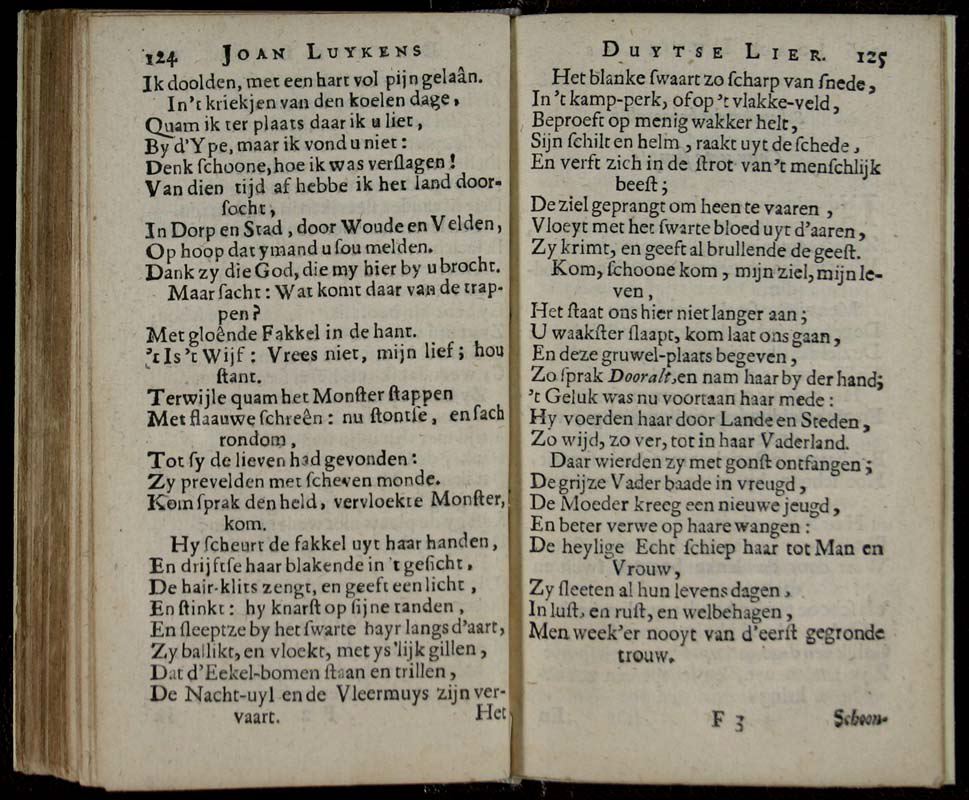 124 JOAN LUYKENS
Ik doolden, met een hart vol pijn gelaân.
In 't kriekjen van den koelen dage,
Quam ik ter plaats daar ik u liet,
By d'Ype, maar ik vond u niet:
Denk ſchoone, hoe ik was verſlagen!
Van dien tijd af hebbe ik het land door-
ſocht,
In Dorp en Stad, door Woude en Velden,
Op hoop dat ymand u ſou melden.
Dank zy die God, die my hier by u brocht.
Maar ſacht: Wat komt daar van de trap-
pen?
Met gloênde Fakkel in de hant.
't Is 't Wijf: Vrees niet, mijn lief; hou
ſtant.
Terwijle quam het Monſter ſtappen
Met flaauwe ſchreên: nu ſtontſe, en ſach
rondom,
Tot ſy de lieven had gevonden:
Zy prevelden met ſcheven monde.
Kom ſprak den held, vervloekte Monſter,
kom.
Hy ſcheurt de fakkel uyt haar handen,
En drijftſe haar blakende in 't geſicht,
De hair-klits zengt, en geeft een licht,
En ſtinkt: hy knarſt op ſijne tanden,
En ſleeptze by het ſwarte hayr langs d'aart,
Zy balkt, en vloekt, met ys'lijk gillen,
Dat d'Eekel-bomen ſtaan en trillen,
De Nacht-uyl en de Vleermuys zijn ver-
vaart. Het
DUYTSE LIER. 125
Het blanke ſwaart zo ſcharp van ſnede,
In 't kamp-perk, of op 't vlakke-veld,
Beproeft op menig wakker helt,
Sijn ſchilt en helm, raakt uyt de ſchede,
En verft zich in de ſtrot van 't menſchlijk
beeſt;
De ziel geprangt om heen te vaaren,
Vloeyt met het ſwarte bloed uyt d'aaren,
Zy krimt, en geeft al brullende de geeſt.
Kom, ſchoone kom, mijn ziel, mijn le-
ven,
Het ſtaat ons hier niet langer aan;
U waakſter ſlaapt, kom laat ons gaan,
En deze gruwel-plaats begeven,
Zo ſprak Dooralt, en nam haar by der hand;
't Geluk was nu voortaan haar mede:
Hy voerden haar door Lande en Steden,
Zo wijd, zo ver, tot in haar Vaderland.
Daar wierden zy met gonſt ontfangen;
De grijze Vader baade in vreugd,
De Moeder kreeg een nieuwe jeugd,
En beter verwe op haare wangen:
De heylige Echt ſchiep haar tot Man en
Vrouw,
Zy ſleeten al hun levens dagen,
In luſt, en ruſt, en welbehagen,
Men week'er nooyt van d'eerſt gegronde
trouw.
F 3 Schoon-